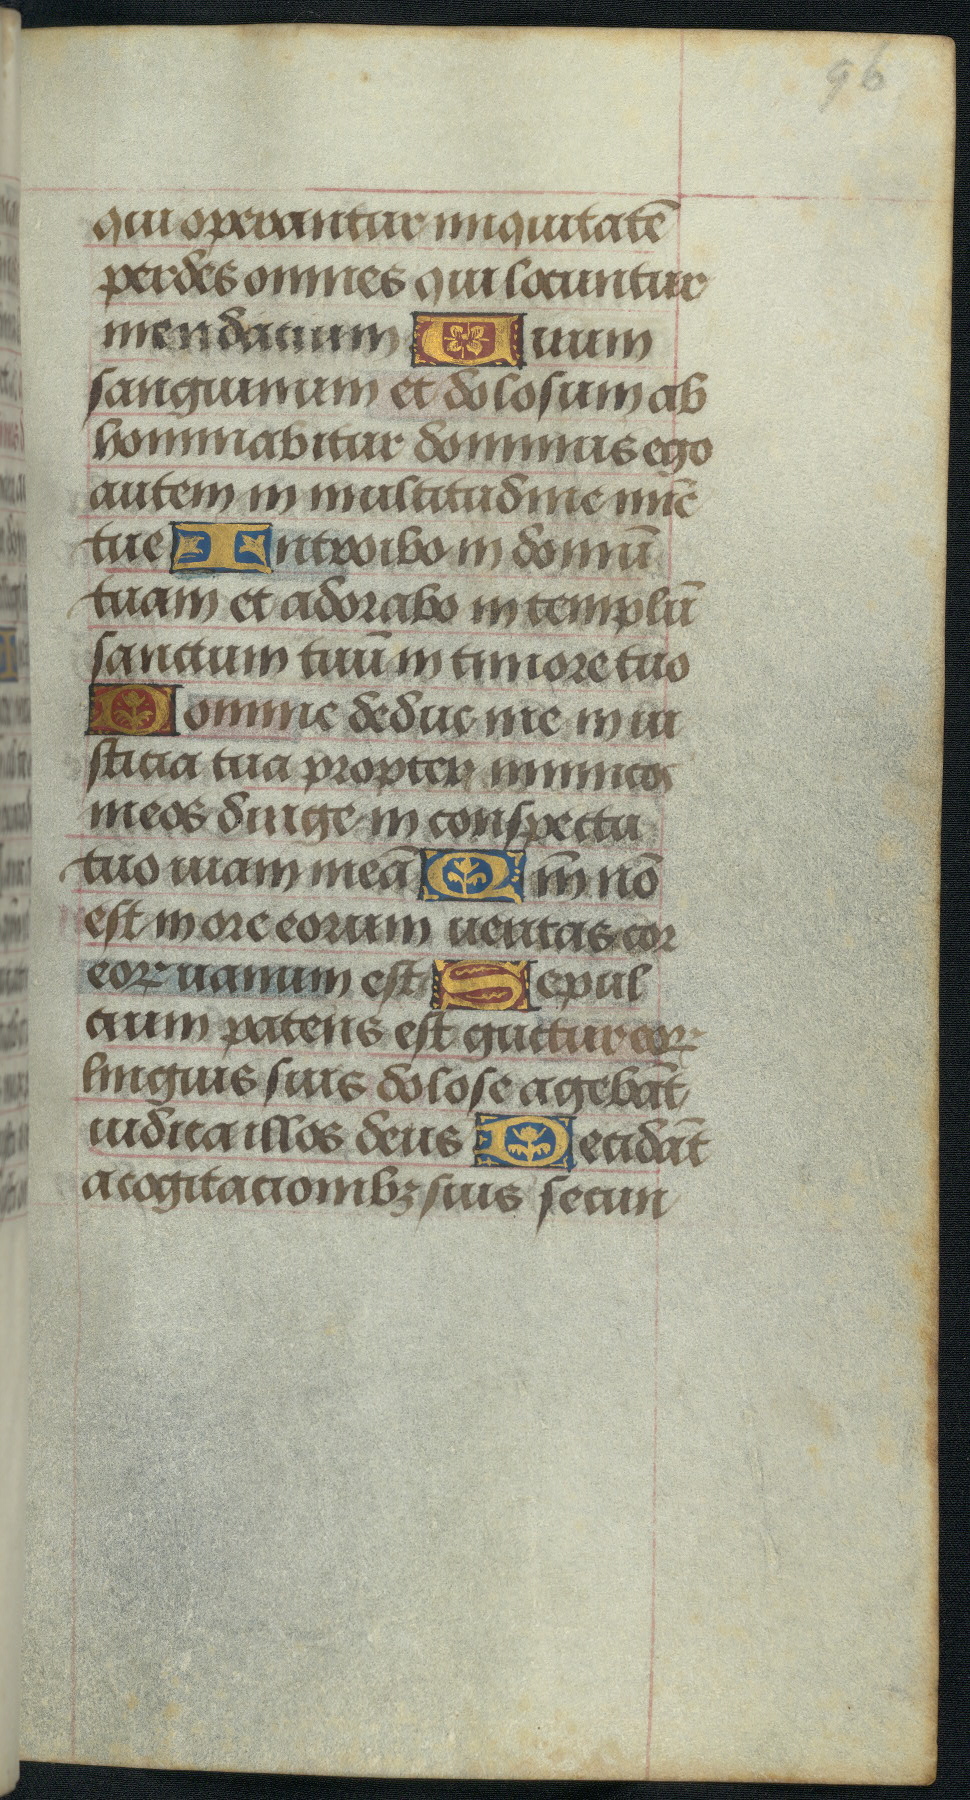 96
qui operantur iniquitatē
perdes omnes qui locuntur
mendacium Uirum
sanguinum et dolosum ab
hominabitur dominus ego
autem in multitudine mīe
tue Introibo in domū
tuam et adorabo in templū
sanctum tuū in timore tuo
Domine deduc me in iu
sticia tua propter inimicos
meos dirige in conspectu
tuo uiam meā Qm̄ nō
est in ore eorum ueritas cor
eoꝝ uanum est Sepul
crum patens est guttur eoꝝ
linguis suis dolose agebāt
iudica illos deus Decidāt
a cogitacionibꝫ suis secun